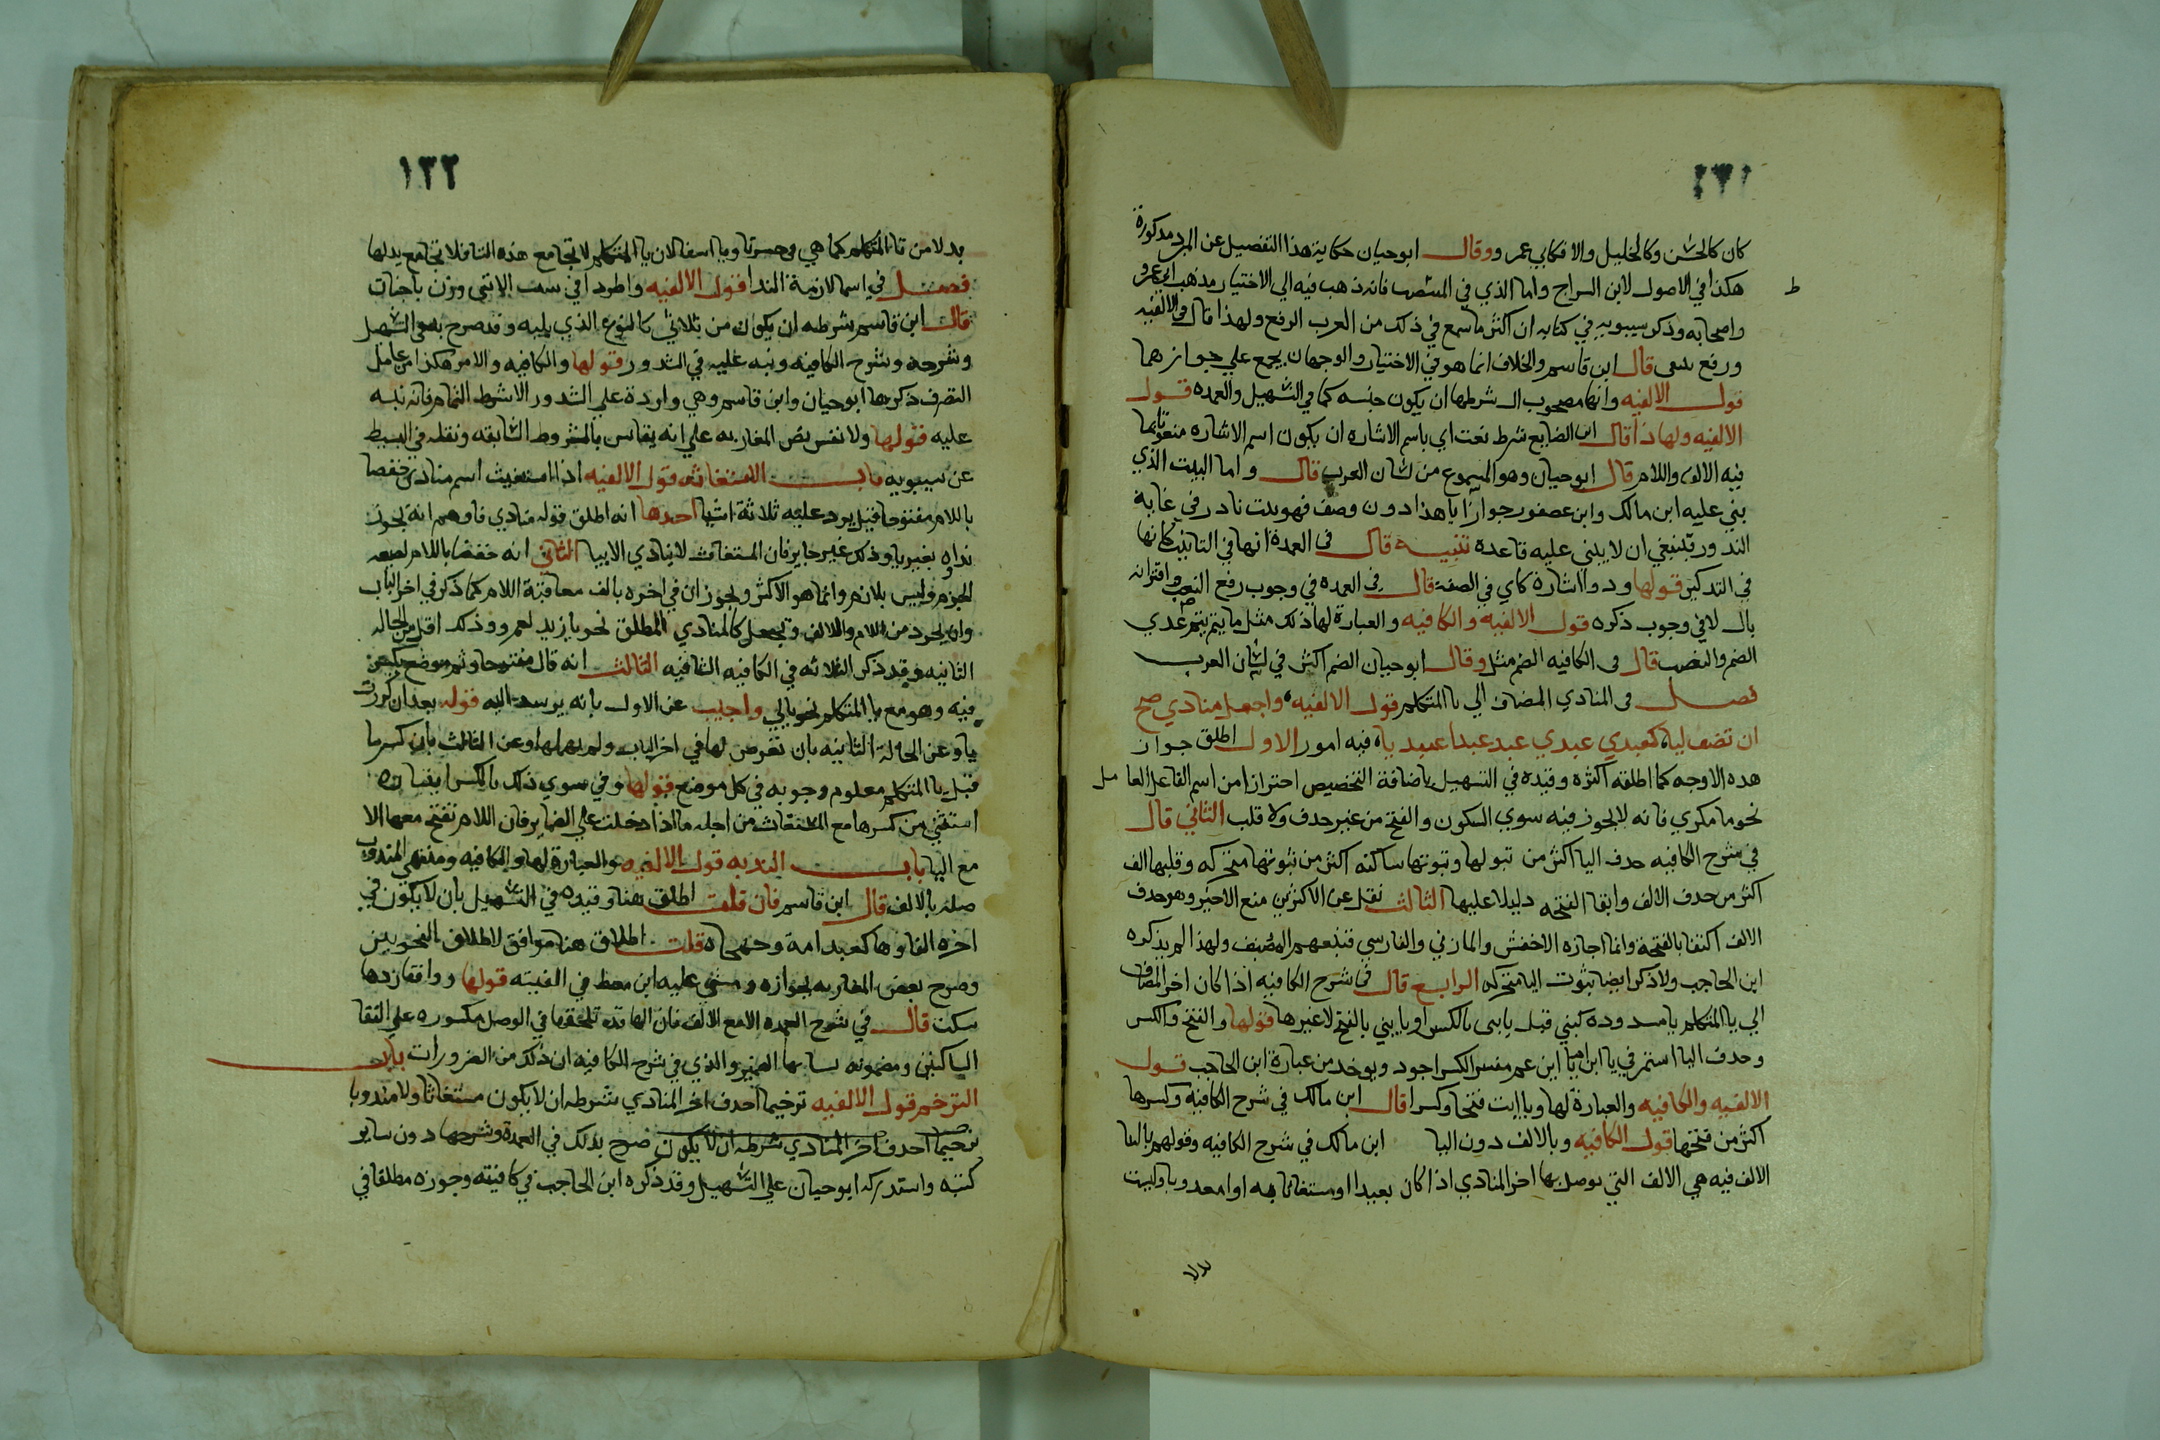 كان كالحسن وكالخليل والا فكابي عمرو وقال ابوحيان حكاية هذا التفصيل عن المبرد مذكورة
هكذا في الاصول لابن السراج واما الذي في المقتضب فانه ذهب فيه الي الاختيار مذهب ابي عمرو
ط
واصحابه وذكر سيبويه في كتابه ان اكثر ما سمع في ذلك من العرب الرفع ولهذا قال في الالفيه
ورفع ينتقى قال ابن قاسم والخلاف انما هو في الاختيار والوجهان يجمع علي جوازهما
قول الالفيه وانها مصحوب ال شرطها ان يكون جنسه كما في التسهيل والعمده قول
الالفيه ولها ذا قال ابن الضايع شرط نعت اي باسم الاشاره ان يكون اسم الاشاره منعوتا بما
فيه الالف واللام قال ابوحيان وهو المسموع من لسان العرب قال واما البيت الذي
بني عليه ابن مالك وابن عصفور جواز يا هذا دون وصف فهو بيت نادر في غاية
الندور فينبغي ان لا يبني عليه قاعدة تنبيه قال في العمدة انها في التانيث كانها
في التذكير قولها وذو اشارة كاي في الصفة قال في العمده في وجوب رفع النعت واقترانه
بال لا في وجوب ذكره قول الالفيه والكافيه والعبارة لها ذلك مثل ما يتيم تيم عدي
الضم والنصب قال في الكافيه الضم مثل وقال ابوحيان الضم اكثر في لسان العرب
فصل في المنادي المضاف الي يا المتكلم قول الالفيه واجعل منادي صح
ان تضف ليا كعبدي عبدي عبد عبدا عبديا فيه امور الاول اطلق جواز
هذه الاوجه كما اطلقه اكثره وقيده في التسهيل باضافة التخصيص احترازا من اسم الفاعل العامل
نحو يا مكرمي فانه لا يجوز فيه سوي السكون والفتح من غير حذف ولا قلب الثاني قال
في شرح الكافيه حذف اليا اكثر من ثبوتها وثبوتها ساكنه اكثر من ثبوتها متحركه وقلبها الف
اكثر من حذف الالف وابقا الفتحه دليلا عليها الثالث نقل عن الاكثرين منع الاخير وهو حذف
الالف اكتفا بالفتحة وانما اجازه الاخفش والمازني والفارسي فتبعهم المصنف ولهذا لم يذكره
ابن الحاجب ولا ذكر ايضا ثبوت اليا متحركه الرابع قال في شرح الكافيه اذا كان اخر المضاف
الي يا المتكلم يا مشدده كبني قيل يا بني بالكسر او يا بني بالفتح لا غيرها قولها والفتح والكسر
وحذف اليا استمر في يا ابن ام يا ابن عم مفسر الكسر اجود ويوخذ من عبارة ابن الحاجب قول
الالفيه والكافيه والعبارة لها ويا ابت فتحا وكسرا قال ابن مالك في شرح الكافيه وكسرها
اكثر من فتحها قول الكافيه وبالالف دون اليا ابن مالك في شرح الكافيه وقولهم يا ابتا
الالف فيه هي الالف التي يوصل بها اخر المنادي اذا كان بعيدا او مستغاثا به او مندوبا وليست
١٣٢
بدلا من تا المتكلم كما هي في حسرتا ويا اسفا لان يا المتكلم لا تجامع هذه التا فلا تجامع بدلها
فصل في اسما لازمة الندا قول الالفيه واطردا في سب الانثى وزن يا خباث
قال ابن قاسم شرطه ان يكون من ثلاثي كالنوع الذي يليه وقد صرح به في التسهيل
وشرحه وشرح الكافيه ونبه عليه في الشذور قولها والكافيه والامر هكذا من كامل
التصرف ذكرها ابوحيان وابن قاسم وهي واردة علي الشذور الا شرط التمام فانه نبه
عليه قولها ولا تقس نص المغاربه علي انه يقاس بالشروط السابقه ونقله في البسيط
عن سيبويه باب الاستغاثه قول الالفيه اذا استغيث اسم منادي خفضا
باللام مفتوحا قيل يرد عليه ثلاثة اشيا احدها انه اطلق قوله منادي فاوهم انه يجوز
نداه بغير يا وذلك غير جايز فان المستغاث لا ينادي الا بيا الثاني انه خفضا باللام لصيغه
الجزم وليس بلازم وانما هو الاكثر ويجوز ان في اخره بالف معاقبة اللام كما ذكر في اخر الباب
وان يجرد من اللام والالف ويجعل كالمنادي المطلق نحو يا زيد لعمرو وذلك اقل من الحاله
الثانيه وقد ذكر الثلاثه في الكافيه الشافيه الثالث انه قال مفتوحا وثم موضع يكسر
فيه وهو مع يا المتكلم نحو يا لي واجيب عن الاول بانه يرشد اليه قوله بعد ان كررت
يا وعن الحالة الثانيه بان تعرض لها في اخر الباب ولم يهملها وعن الثالث بان كسر ما
قبل يا المتكلم معلوم وجوبه في كل موضع قولها وفي سوي ذلك بالكسر ايتيا
استثني من كسرها مع المستغاث من اجله ما اذا دخلت علي الضماير فان اللام تفتح معها الا
مع اليا باب الندبه قول الالفيه والعبارة لها والكافيه ومنتهي المندوب
صله بالالف قال ابن قاسم فان قلت اطلق هنا وقيده في التسهيل بان لا يكون في
اخره الفا وها كعبد امة وجهجاه قلت اطلاق هنا موافق لاطلاق النحويين
وصرح بعض المغاربه بجوازه ومشي عليه ابن معط في الفيته قولها وواقفا زد ها
سكت قال في شرح العمده الا مع الالف فان الها قد تلحقها في الوصل مكسوره علي التقا
الساكنين ومضمونه بها الضمير والذي في شرح الكافيه ان ذلك من الضرورات باب
الترخيم قول الالفيه ترخيما احذف اخر المنادي شرطه ان لا يكون مستغاثا ولا مندوبا
ترخيما احذف اخر المنادي شرطه ان لا يكون صرح بذلك في العمدة وشرحها دون ساير
كتبه واستدركه ابوحيان علي التسهيل وقد ذكره ابن الحاجب في كافيته وجوزه مطلقا في